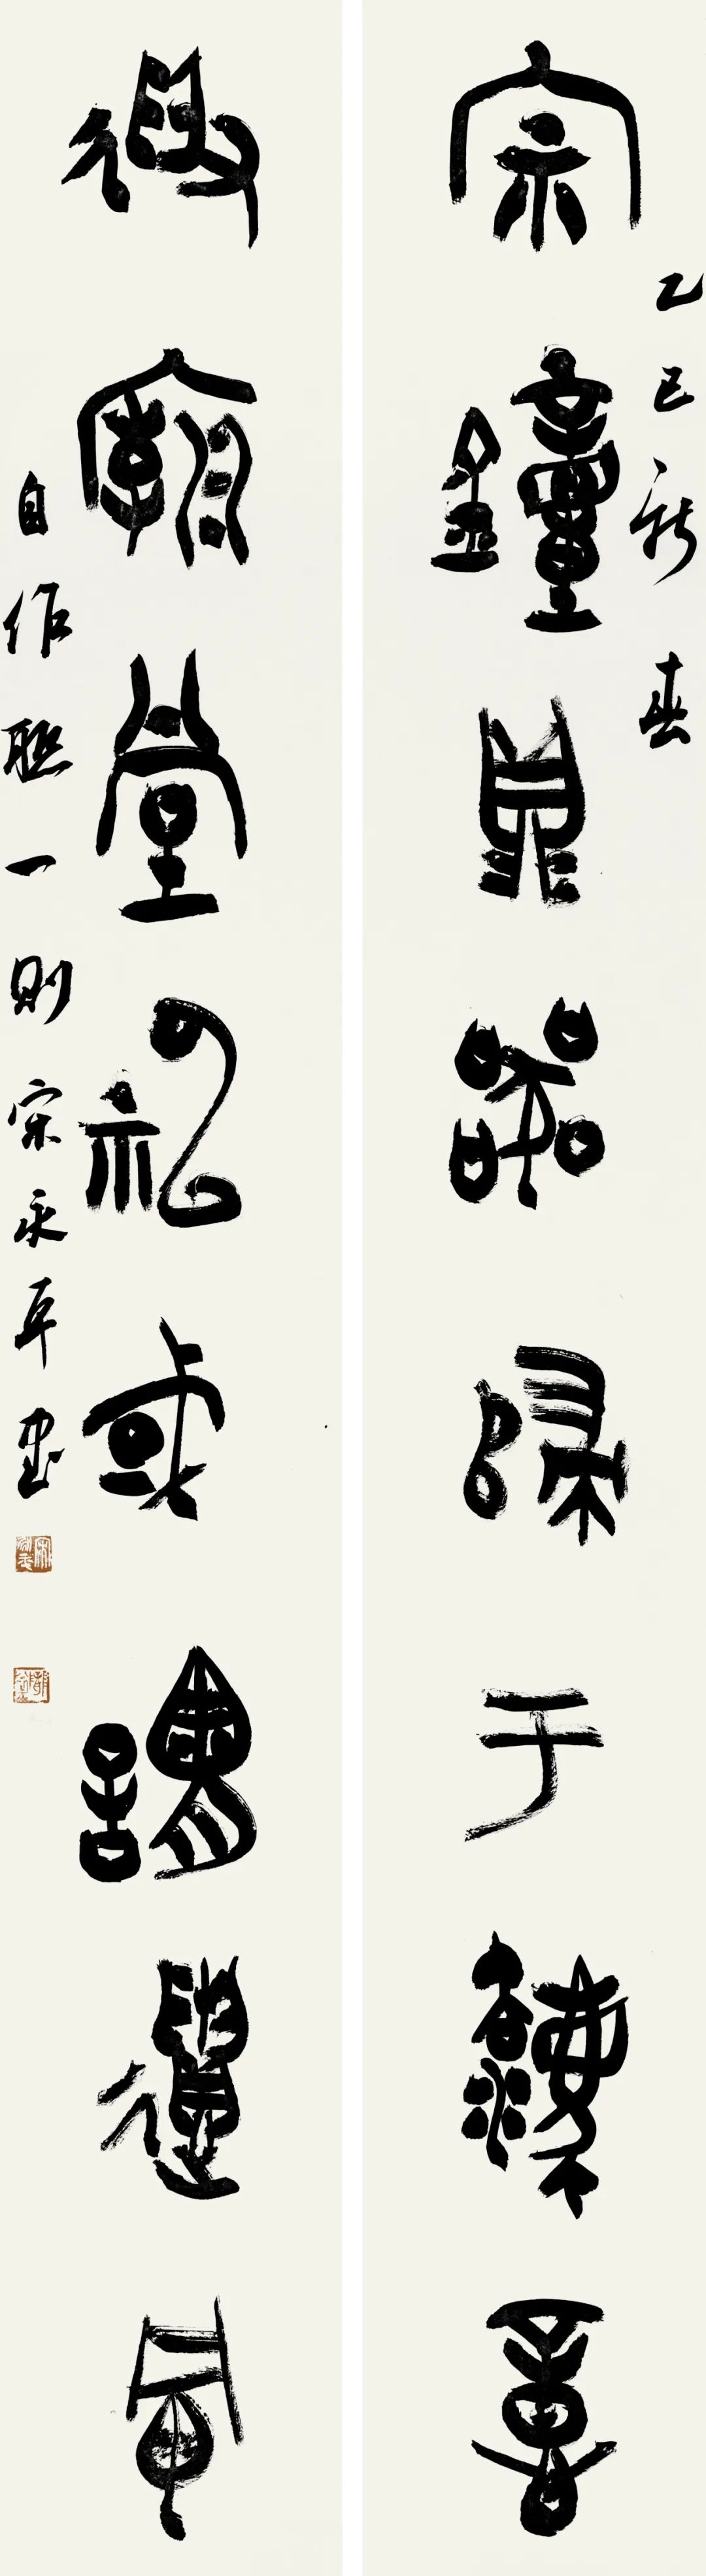 乙巳新春
宗鐘鼎器歸于
廟堂祀或謂遺風
自作聯一則宋永平書